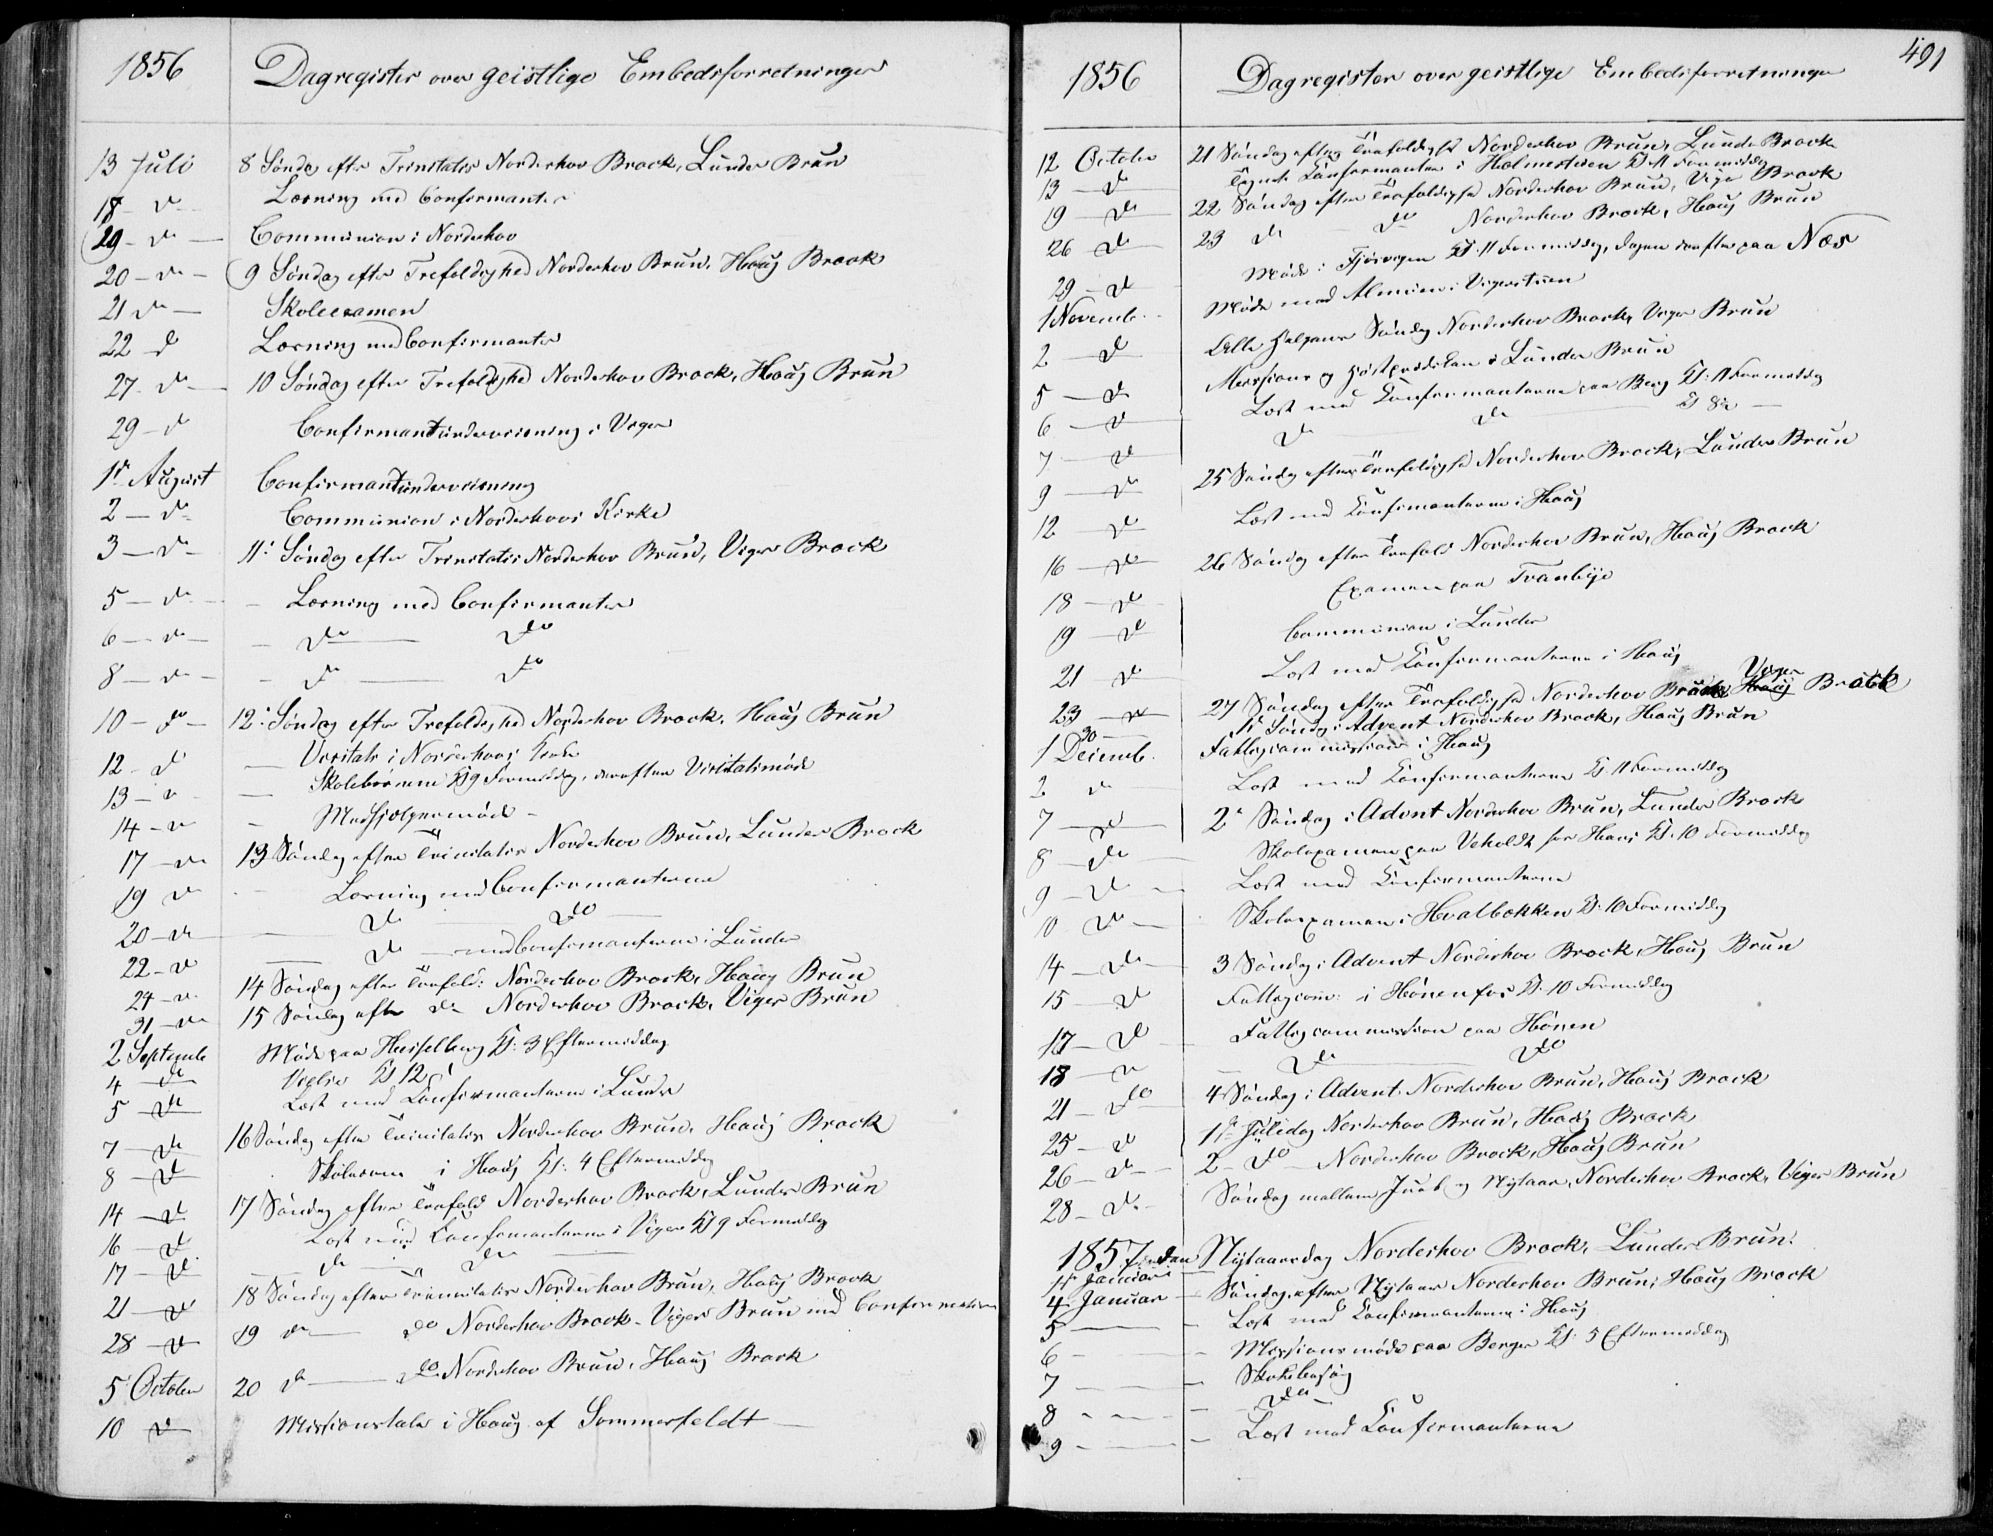 1856 Dagregister over geistlige Embedsforretninger
13 Juli 8 Søndag efter Trinitatis Norderhov Brock, Lunder Brun
18 - do - Læsning med Confirmanter
29 - do - Communion i Norderhov
20 - do - 9 Søndag efter Trefoldighed Norderhov Brun, Haug Brock
21 do - Skoleexamen
22 d Læsning med Confirmanter
27 - do - 10 Søndag efter Trefoldighed Norderhov Brock, Haug Brun
29 - do Confirmantundervisning i Viger
1st August Confirmantundervisning
2 - do Communion i Norderhovs Kirke
3 - do - 11: Søndag efter Trinitatis Norderhov Brun, Viger Brock
5 - do - - Læsning med Confirmanter
6 - do - - do - do
8 - do - - do - do
10 - do - 12: Søndag efter Trefoldighed Norderhov Brock, Haug Brun
12 - do - Visitats i Norderhovs Kirke
13 - do - Skolebørnene Kl 9 Formiddag, derefter Visitatsmøde
14 - do - Medhjelpermøde -
17 - do 13 Søndag efter Trinitatis Norderhov Brun, Lunder Brock
19 do - Læsning med Confirmanterne
20 - do - do - do -
22 - do - do - med Confirmanterne i Lunder
24 - do 14 Søndag efter Trefold: Norderhov Brock, Haug Brun
31 - do 15 Søndag efter do Norderhov Brock, Viger Brun
2 Septemb Møde paa Hesselberg Kl: 3 Eftermiddag
4 - do Vielse Kl 12
5 - do Læst med Confirmanterne i Lunder
7 - do 16 Søndag efter Trinitatis Norderhov Brun, Haug Brock
8 - do i Haug Kl: 4 Eftermiddag
14 - do 17 Søndag efter Trefold Norderhov Brock, Lunder Brun
16 - do Læst med Confirmanterne i Viger Kl 9 Formiddag
17 - do - do - do -
21 - do 18 Søndag efter Trinitatis Norderhov Brun, Haug Brock
28 - do 19 do - do Norderhov Brock - Viger Brun med Confirmation
5 October 20 do - do Norderhov Brun, Haug Brock
10 do Missionstale i Haug af Sommerfeldt -
491
1856 Dagregister over geistlige Embedsforretninger
12 October 21 Søndag efter Trefoldighed Norderhov Brun, Lunder Brock
13 - do Confirmanter i Holmestuen Kl 11 Formiddag
19 - do 22 Søndag efter Trefoldighed Norderhov Brun, Viger Brock
26 - do 23 do - do Norderhov Brock, Haug Brun
29 - do Møde i Kl. 11 Formiddag, dagen derefter paa Næs
1 Novemb. Møde med i Vigerstuen
2 - do Alle Helgens Søndag Norderhov Brock, Viger Brun
5 - do Missions og i Lunder Brun
6 - do Læst med Confirmanterne paa Berg Kl: 11 Formiddag
7 - do do - do - Kl 8½ -
9 - do 25 Søndag efter Trefoldighed Norderhov Brock, Lunder Brun
12 - do Læst med Confirmanterne i Haug
16 - do 26 Søndag efter Trefold Norderhov Brun, Haug Brock
18 - do Examen paa Tranbye
19 - do Communion i Lunder
21 do Læst med Confirmanterne i Haug
23 - do 27 Søndag efter Trefoldighed Norderhov Haug Viger Brock
30 - 1st Søndag i Advent Norderhov Brock, Haug Brun
1 Decemb. Fattigcommission i Haug
2 do Læst med Confirmanterne Kl. 11 Formiddag
7 - do 2: Søndag i Advent Norderhov Brun, Lunder Brock
8 - do Skoleexamen paa Veholdt for Haug Kl. 10 Formiddag
9 - do - Læst med Confirmanterne
10 do - Skoleexamen i Hvalbækken Kl. 10 Formiddag
14 - do - 3 Søndag i Advent Norderhov Brock, Haug Brun
15 - do Fattigcom: i Hønenfos Kl. 10 Formiddag
17 - do Fattigcommission paa Hønen
18 - do do - do
21 - do 4 Søndag i Advent Norderhov Brun, Haug Brock
25 - do 1ste Juledag Norderhov Brun, Haug Brock
26 - do - 2 - do - Norderhov Brock, Haug Brun
28 - do - Søndag mellem Juul og Nytaar, Norderhov Brock, Viger Brun
1857 den
1st Januari Nytaarsdag Norderhov Brock, Lunder Brun.
4 Januar - Søndag efter Nytaar Norderhov Brun, Haug Brock
5 - Læst med Confirmanterne i Haug
6 - - Missionsmøde paa Berger Kl: 5 Eftermiddag
7 - - Skolebesøg
8 - - do
9 - - Læst med Confirmanterne